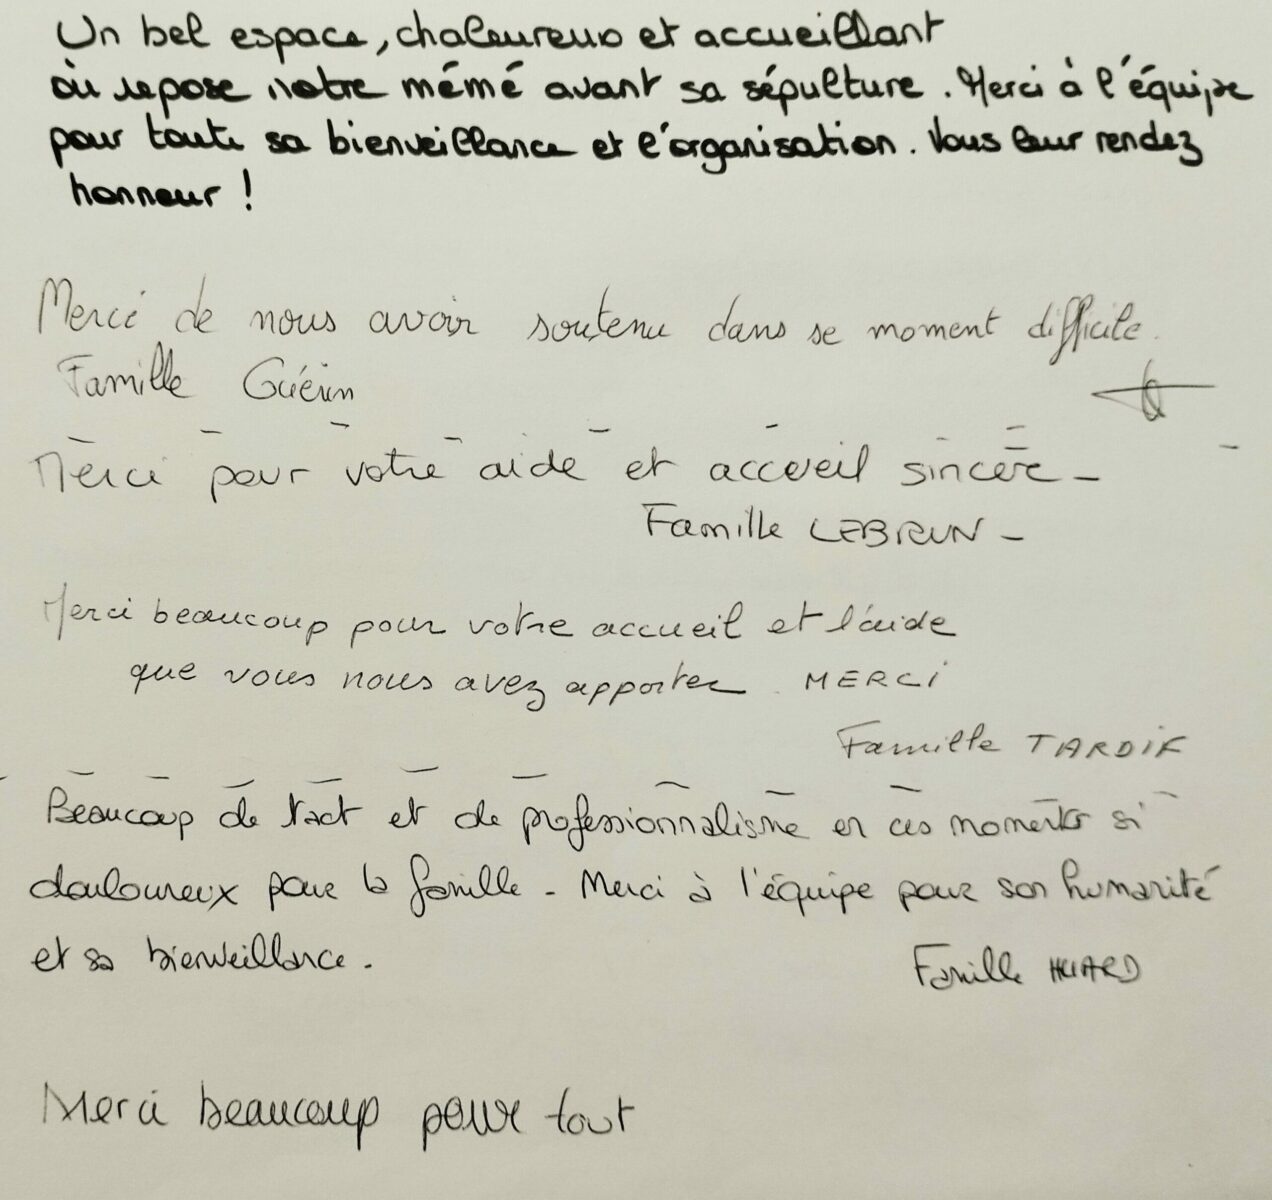 Un bel espace, chaleureux et accueillant
où repose notre mémé avant sa sépulture. Merci à l'équipe
pour toute sa bienveillance et l'organisation. Vous leur rendez
honneur !
Merci de nous avoir soutenu dans se moment difficile.
Famille Guérin
Merci pour votre aide et acceuil sincère -
Famille LEBRUN -
Merci beaucoup pour votre accueil et l'aide
que vous nous avez apporter. MERCI
Famille TARDIF
Beaucoup de tact et de professionnalisme en ces moments si
douloureux pour la famille - Merci à l'équipe pour son humanité
et sa bienveillance.
Famille HUARD
Merci beaucoup pour tout